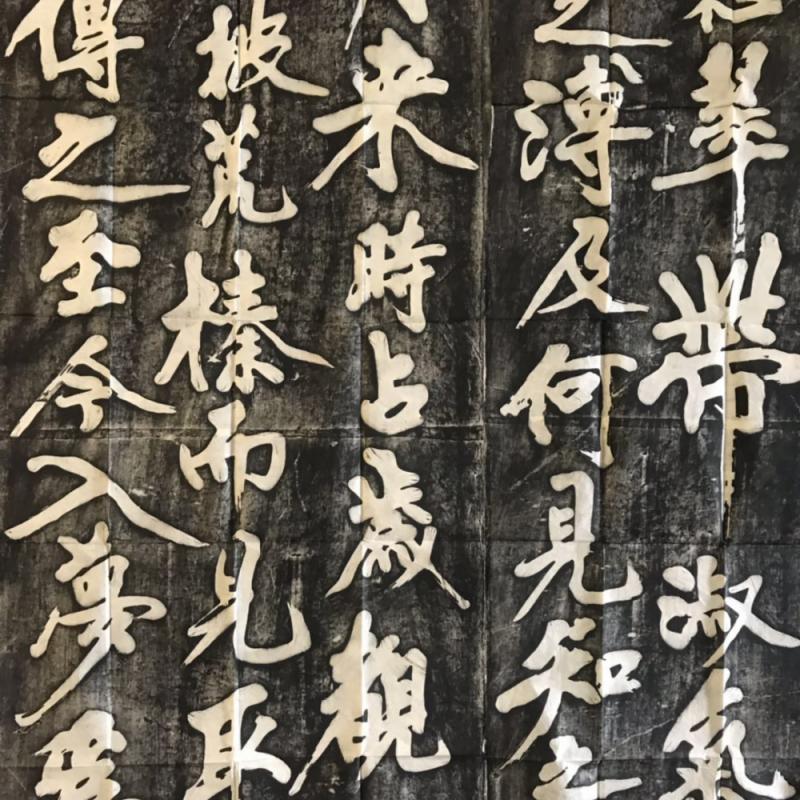 帶淑氣
之溥及何見知之
來時占歲觀
披荒榛而見取
傳之至今入夢